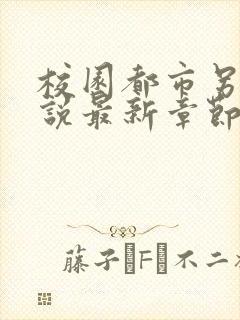 校園都市另
說最新章節
藤子·F·不二